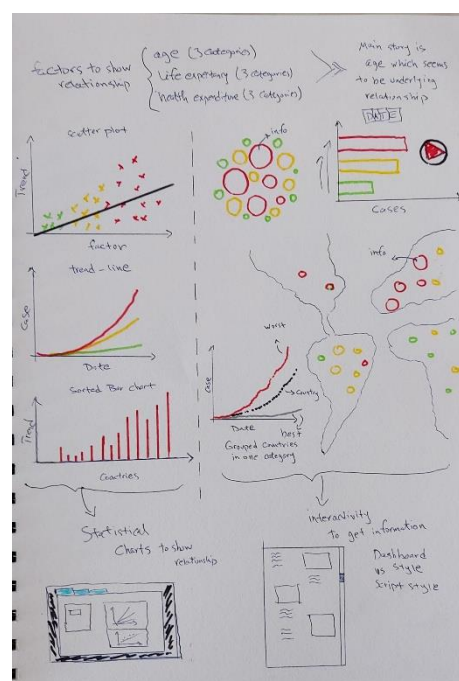 factors to show
relationship
age (3 categories)
life expectancy (3 categories)
health expenditure (3 categories)
Main story is
age which seems
to be underlying
relationship
scatter plot
Trend
factor
info
DATE
Cases
trend-line
Case
Date
info
Sorted Bar chart
Trend
Countries
worst
Country
best
Case
Date
Grouped Countries
in one category
Statistical
Charts to show
relationship
interactivity
to get information
Dashboard
vs style
Script style